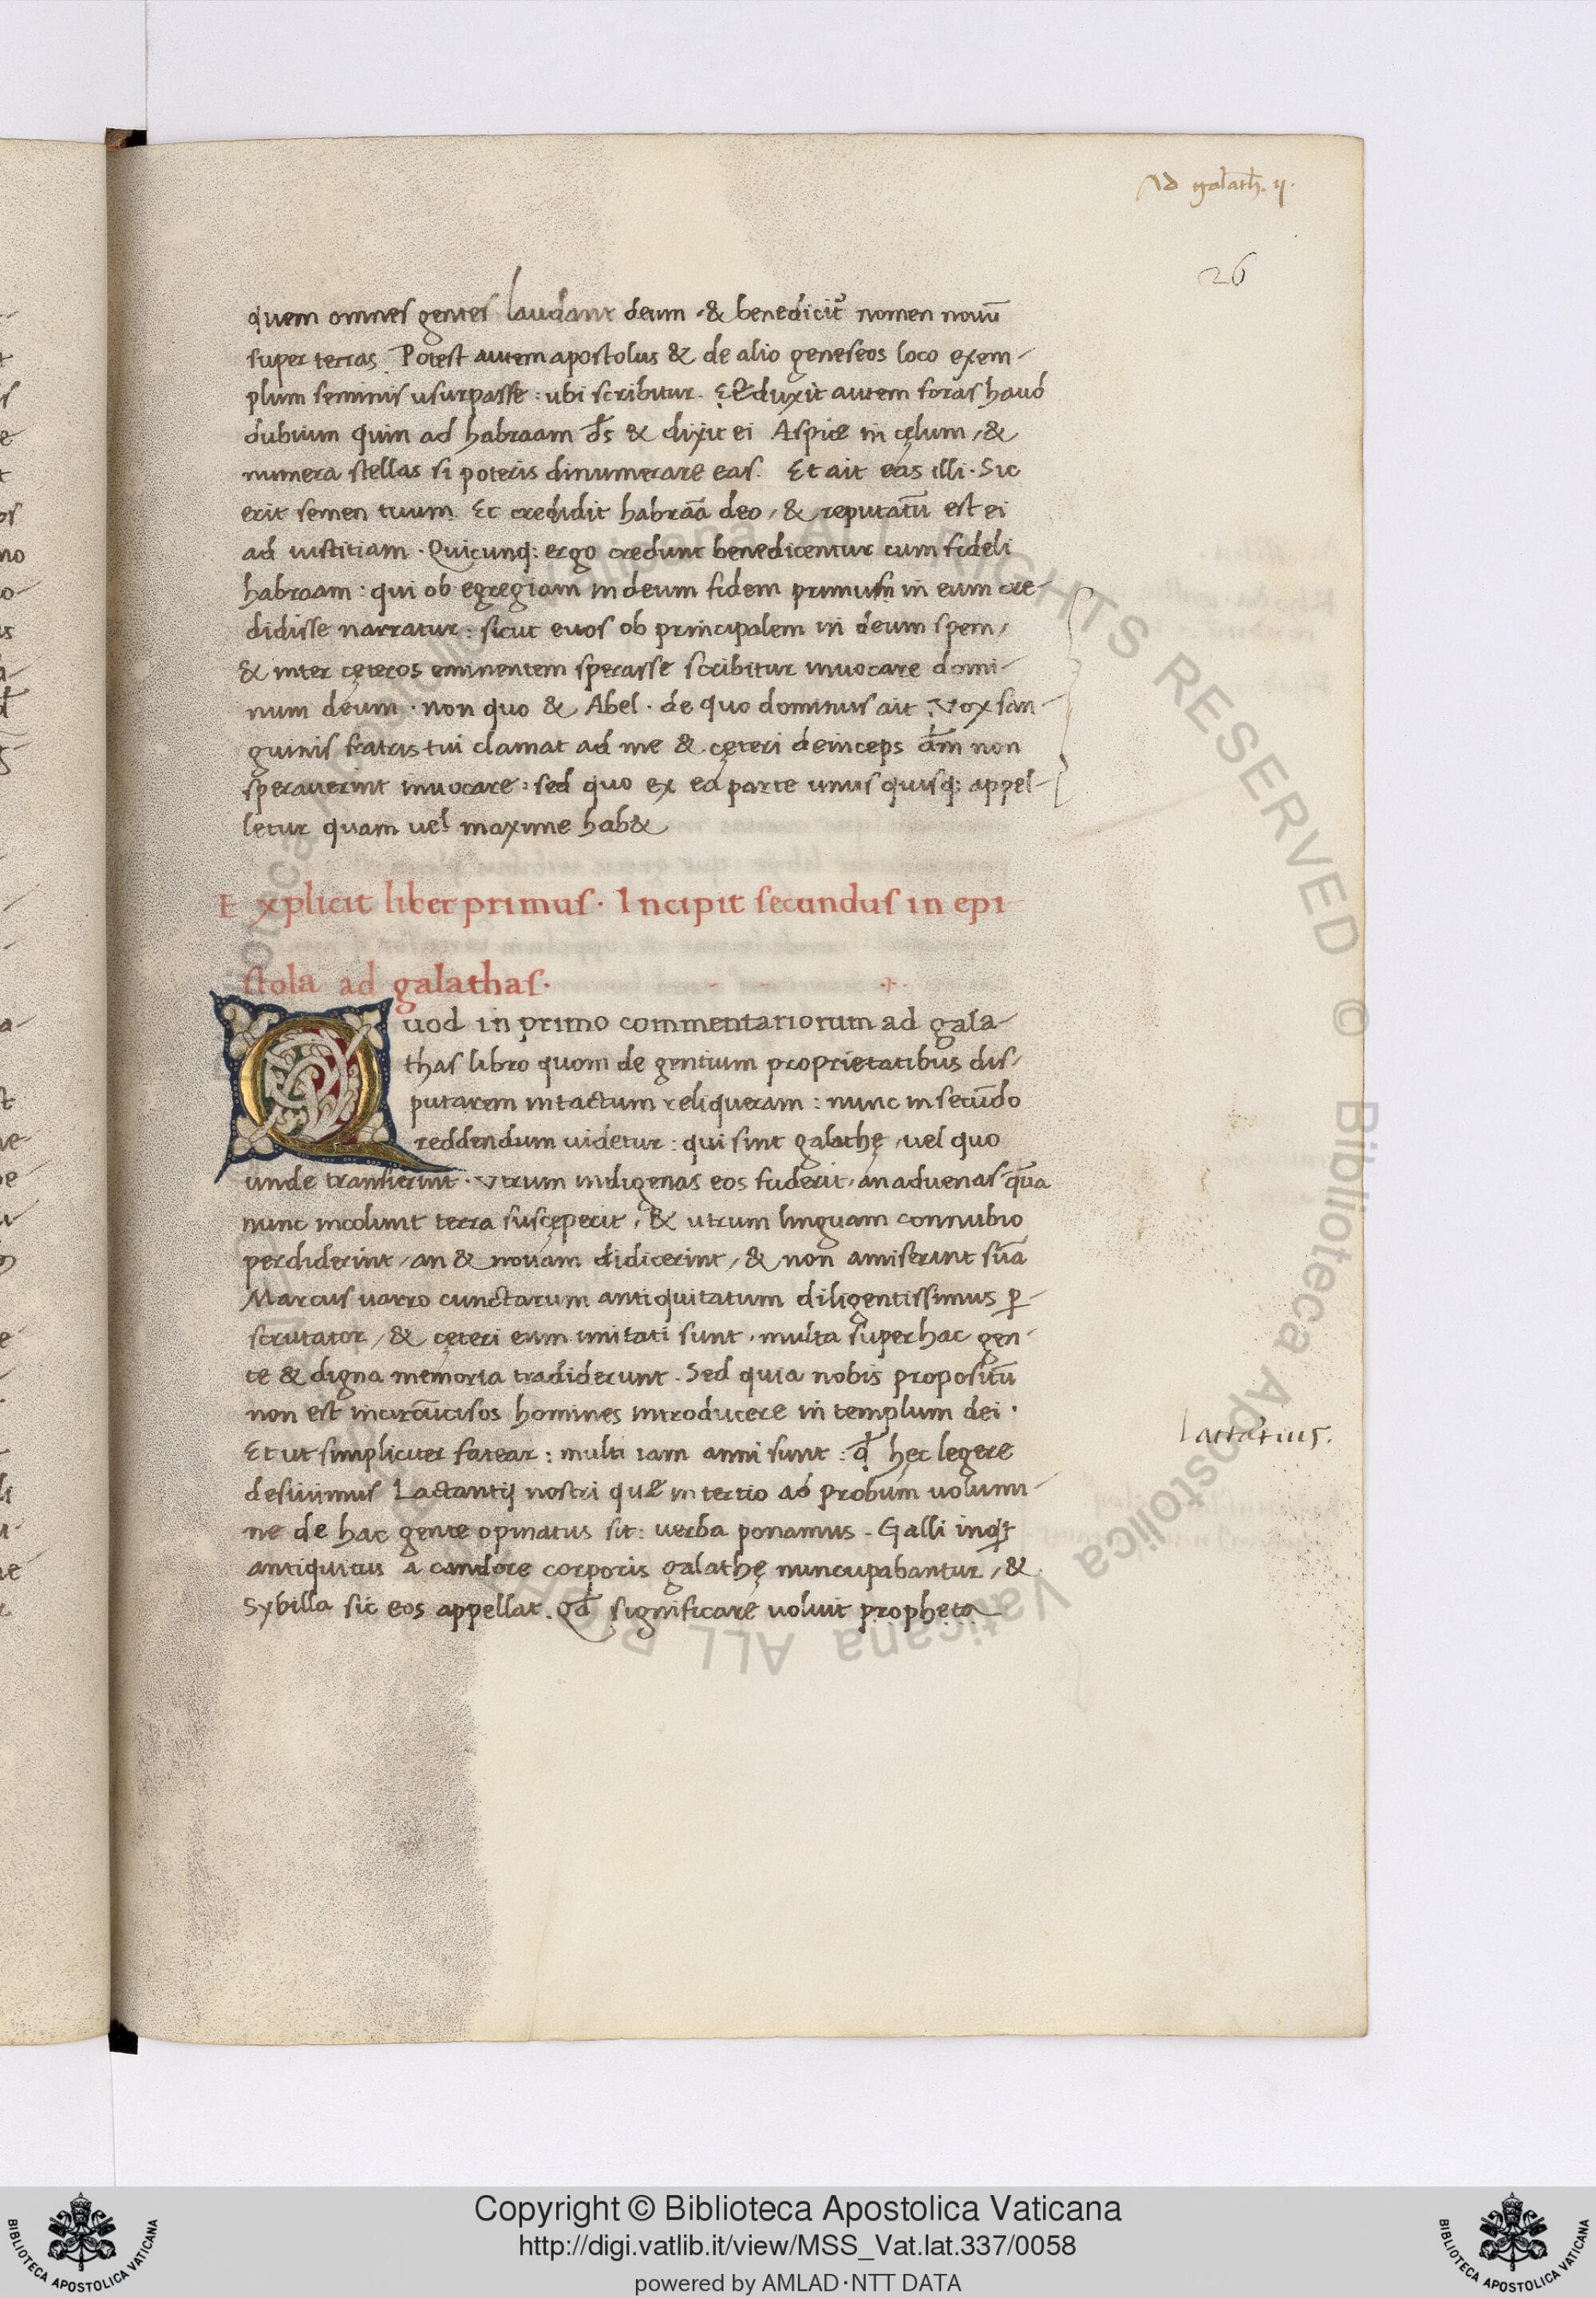 Ad galath. ij.
26
quem omnes gentes laudant deum · & benedicit᷑ nomen nouū
super terras. Potest autem apostolus & de alio geneseos loco exem-
plum seminis usurpasse : ubi scribitur. Eduxit autem foras haud
dubium quin ad habraam d̄s & dixit ei Aspice in cęlum, &
numera stellas si poteris dinumerare eas. Et ait eas illi. Sic
erit semen tuum. Et credidit habraā deo, & reputatū est ei
ad iustitiam. Quicunq; ergo credunt benedicentur cum fideli
habraam : qui ob egregiam in deum fidem primum in eum cre-
didisse narratur : sicut enos ob principalem in deum spem,
& inter cęteros eminentem sperasse scribitur inuocare domi-
num deum · non quo & Abel · de quo dominus ait Vox san-
guinis fratris tui clamat ad me & cęteri deinceps dm̄ non
sperauerint inuocare : sed quo ex ea parte unus quisq; appel-
letur quam uel maxime hab&
Explicit liber primus. Incipit secundus in epi
stola ad galathas.
Quod in primo commentariorum ad gala-
thas libro quom de gentium proprietatibus dis-
putarem intactum reliqueram : nunc in secūdo
reddendum uidetur : qui sint galathę, uel quo
unde transierint. Vtrum indigenas eos fuderit, an aduenas quā
nunc incolunt terra susceperit, & utrum linguam connubio
perdiderint, an & nouam didicerint, & non amiserint suā
Marcus uarro cunctarum antiquitatum diligentissimus p̱-
scrutator, & cęteri eum imitati sunt, multa super hac gen-
te & digna memoria tradiderunt. Sed quia nobis propositū
non est incircūcisos homines introducere in templum dei.
Et ut simpliciter fatear : multi iam anni sunt : qđ hęc legere
desiuimus Lactantij nostri quę in tertio ad probum uolumi-
ne de hac gente opinatus sit : uerba ponamus. Galli inqt
antiquitus a candore corporis galathę nuncupabantur, &
Sybilla sic eos appellat. Qđ significare uoluit propheta
Lactātius.
Copyright © Biblioteca Apostolica Vaticana
http://digi.vatlib.it/view/MSS_Vat.lat.337/0058
powered by AMLAD·NTT DATA